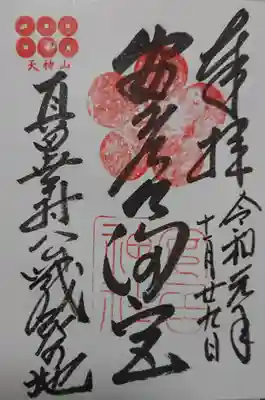 奉拝
令和元年
十一月廿九日
安居天満宮
天神山
真田幸村公戦歿の地